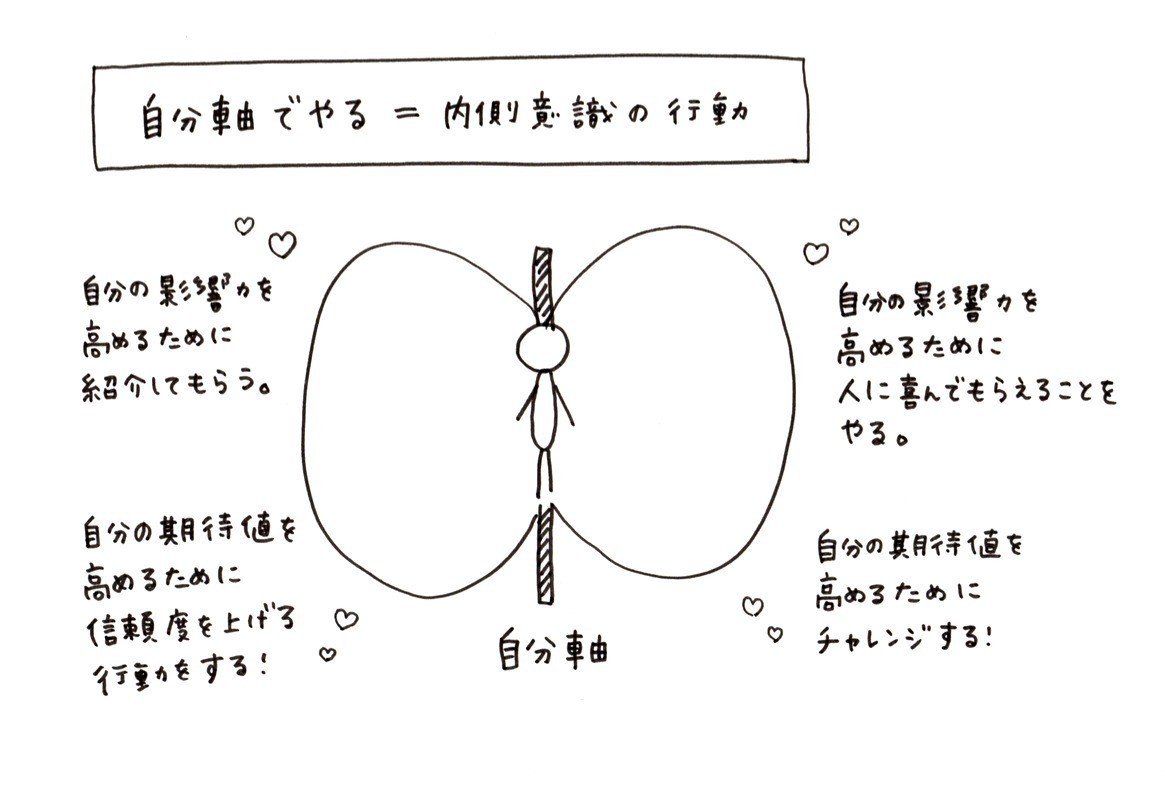 自分軸でやる = 内側意識の行動
自分の影響力を
高めるために
紹介してもらう。
自分の影響力を
高めるために
人に喜んでもらえることを
やる。
自分の期待値を
高めるために
信頼度を上げる
行動をする!
自分の期待値を
高めるために
チャレンジする!
自分軸